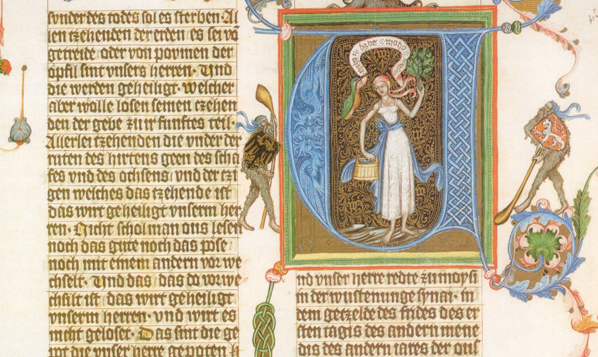 sunder des todes sol es sterben. Al
len tzehenden der erden es sei vō
getreide oder von poumen der
opfil sint vnsers herren. Vnd
die werden geheiligt. Welcher
aber wolle losen seinen tzehen
den der gebe zu ir funftes teil.
Allerlei tzehenden die vnder der
ruten des hirtens geen des scha
fes vnd des ochsens, vnd der tzi
gen welches das tzehende ist
das wirt geheiligt vnserm her
ren. Nicht schol man ons lesen
noch das gute noch das pose
noch mit einem andern vor we
chselt. Vnd das das do vorwe
chselt ist das wirt geheiliget
vnserm herren. vnd wirt es
nicht geloset. Das sint die ge
pot die vnser herre gepoten
nd vnser herre redte zu moysi
in der wustenunge synai. in
dem getzelde des frides des er
sten tagis des andern mene
dis des andern iares der ous